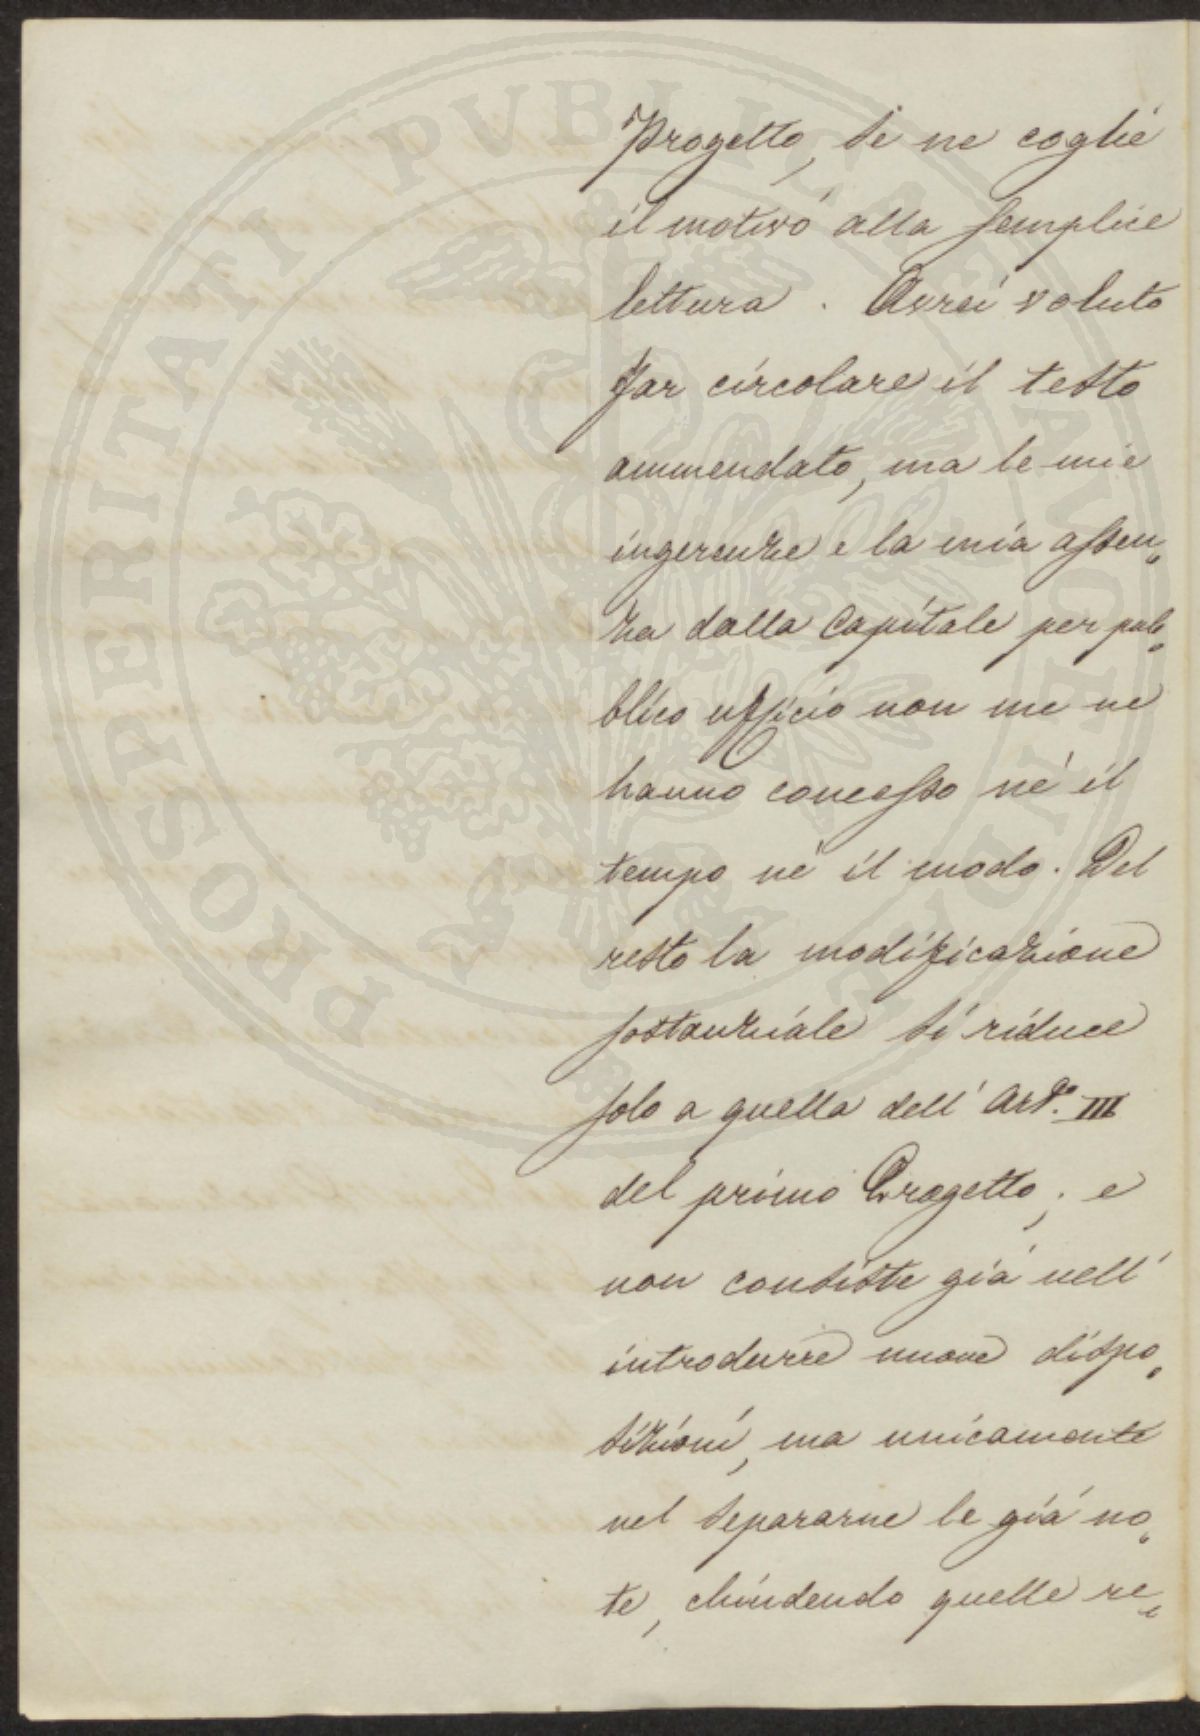 Progetto, si ne coglie
il motivo alla semplice
lettura. Avrei voluto
far circolare il testo
ammendato, ma le mie
ingerenze e la mia assen„
za dalla Capitale per pub„
blico ufficio non me ne
hanno concesso nè il
tempo nè il modo. Del
resto la modificazione
sostanziale si riduce
solo a quella dell' Artº. III
del primo Progetto; e
non consiste già nell'
introdurre nuove dispo„
sizioni, ma unicamente
nel separarne le già no„
te, chiudendo quelle re„
PROSPERITATI PVBLICAE AVGENDAE